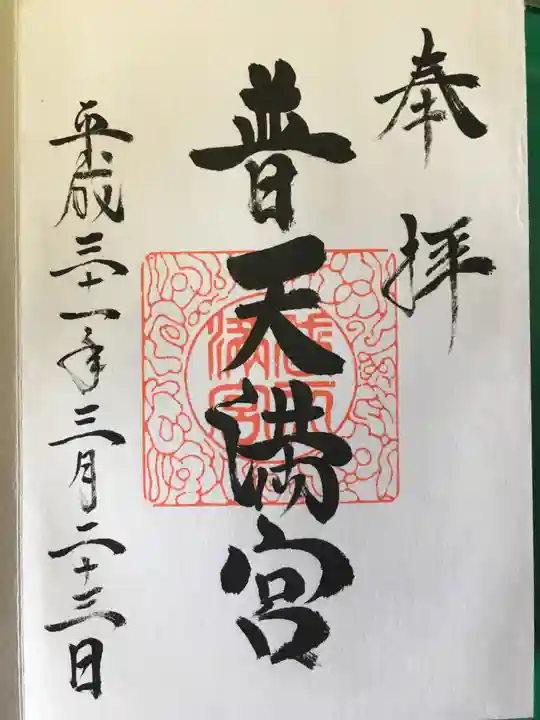 奉拝
普天満宮
平成三十一年三月二十三日